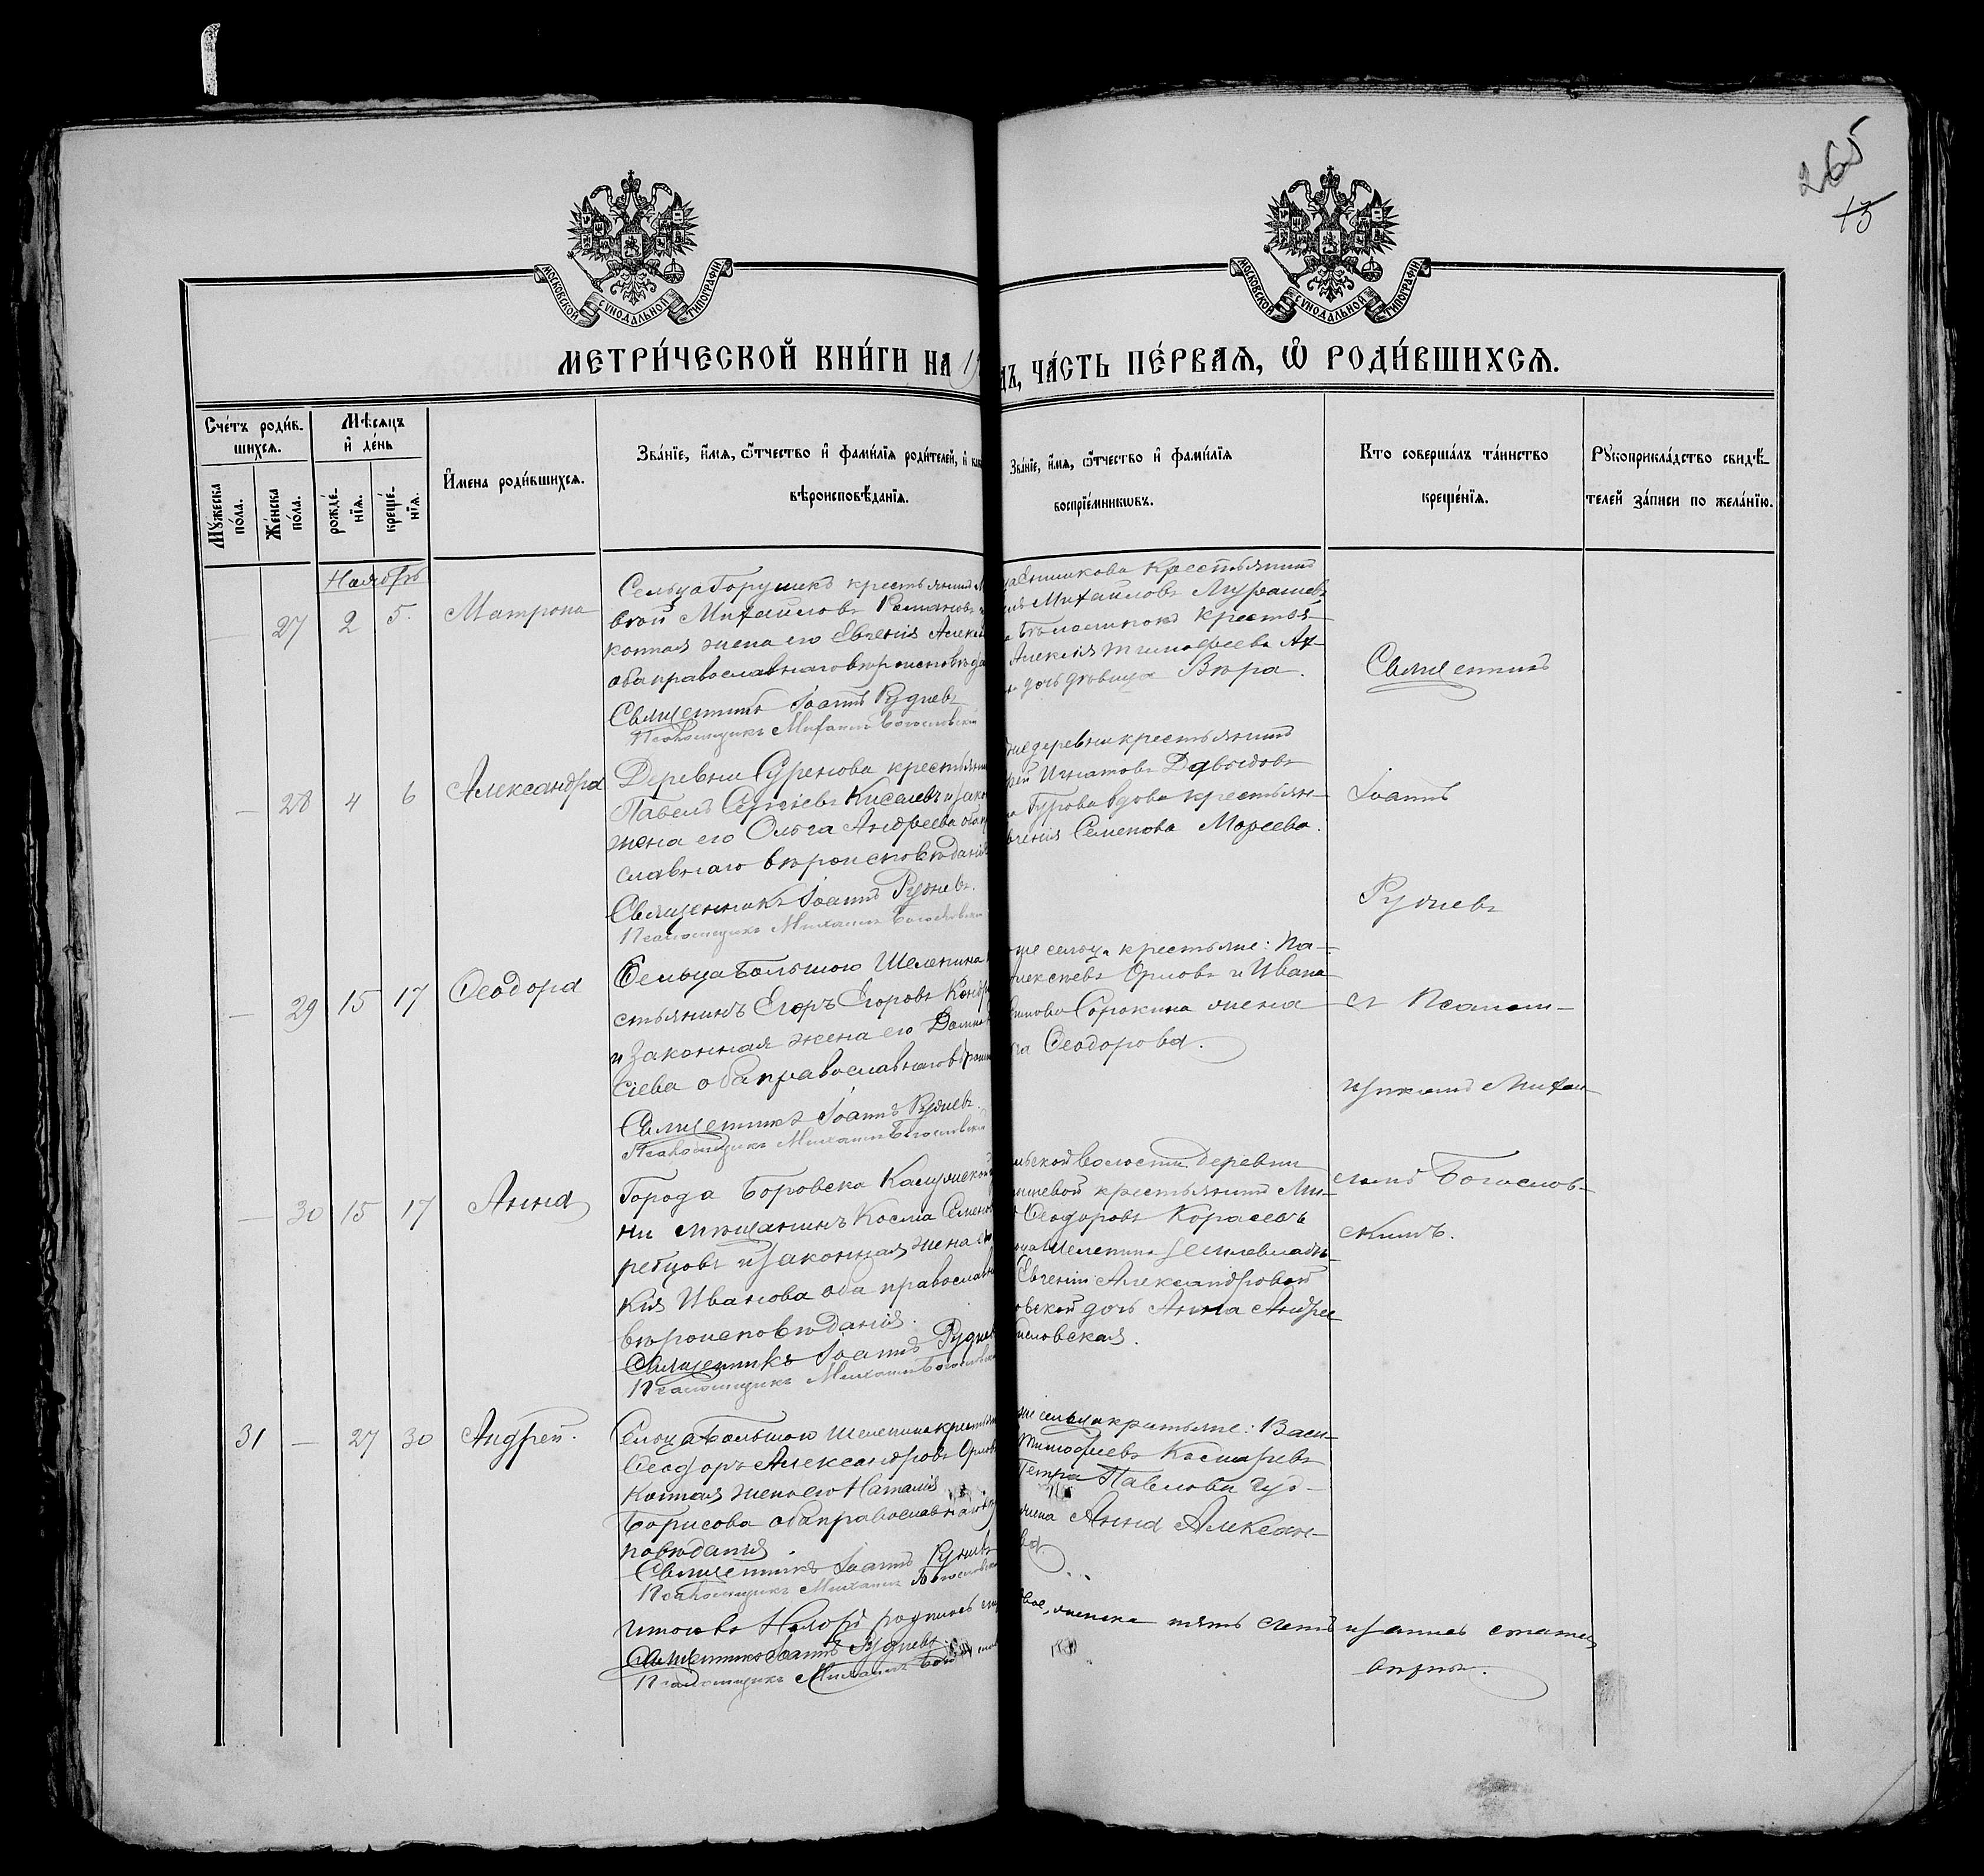 265
13
МОСКОВСКОЙ СѴНОДАЛЬНОЙ ТИПОГРАФІИ
МОСКОВСКОЙ СѴНОДАЛЬНОЙ ТИПОГРАФІИ
МЕТРИ́ЧЕСКОЙ КНИ́ГИ НА 19
ДЪ, ЧА́СТЬ ПЕ́РВАѦ, Ѡ҆ РОДИ́ВШИХСѦ.
Сче́тъ роди́в-
шихсѧ.
Мꙋ́жеска по́ла.
Же́нска по́ла.
Мѣ́сѧцъ
и҆ де́нь
рожде́-нїѧ.
креще́-нїѧ.
И҆мена роди́вшихсѧ.
Зва́нїе, и҆́мѧ, ѻ҆́тчество и҆ фами́лїѧ роди́телей, и҆ как
вѣроисповѣ́данїѧ.
Зва́нїе, и҆́мѧ, ѻ҆́тчество и҆ фами́лїѧ
воспрїе́мникѡвъ.
Кто соверша́лъ та́инство
креще́нїѧ.
Рꙋкоприкла́дство свидѣ́-
телей за́писи по жела́нїю.
Ноябрь
— 27 2 5. Матрона
Сельца Горушкъ крестьянинъ
вой Михайловъ Романовъ
конная жена его Евгенія Алексѣ
оба православнаго вѣроисповѣда
Священникъ Іоаннъ Рудневъ
Псаломщикъ Михаилъ Богословскій
крестьянинъ
Михаиловъ Мурашевъ
крестья-
Алексія Тимоѳеева Ак-
дочь дѣвица Вѣра.
Священникъ
— 28 4 6 Александра
Деревни Суренова крестьянин
Павелъ Сергіевъ Киселевъ и зако
жена его Ольга Андреева оба пр
славнаго вѣроисповѣданія
Священникъ Іоаннъ Рудневъ.
Псаломщикъ Михаилъ Богословскій
же деревни крестьянинъ
Игнатовъ Давыдовъ
Гурова вдова крестьян-
вгенія Семенова Мореева.
Іоаннъ
Рудневъ
— 29 15 17 Ѳеодора
Сельца Большого Шелепина
стьянинъ Егоръ Егоровъ Кондр
и законная жена его Домна
сіева оба православнаго вѣрои
Священникъ Іоаннъ Рудневъ.
Псаломщикъ Михаилъ Богословскій
оже сельца крестьяне: Па-
Алексѣевъ Орловъ и Ивана
Сорокина жена
Ѳеодорова.
съ Псалом-
щикомъ Михаи-
— 30 15 17 Анна
Города Боровска Калужской
ніи мѣщанинъ Косма Семенов
ребцовъ и законная жена его
кія Иванова оба православн
вѣроисповѣданія.
Священникъ Іоаннъ Рудневъ
Псаломщикъ Михаилъ Богословскій
льской волости деревни
крестьянинъ Ми-
Ѳеодоровъ Королевъ
Шелепина землевладѣ-
Евгеніи Александровой
овской дочь Анна Андре-
словская.
ломъ Богослов-
скимъ.
31 — 27 30 Андрей.
Сельца Большого Шелепина крестьян
Ѳеодоръ Александровъ Орловъ
конная жена его Наталія
Борисова оба православнаго вѣ
повѣданія.
Священникъ Іоаннъ Рудневъ
Псаломщикъ Михаилъ Богословскій
же сельца крестьяне: Васи-
Тимоѳеевъ Косыревъ
Петра Павлова Гуд-
жена Анна Алексан-
ва.
Итого въ Ноябрѣ родилось
Священникъ Іоаннъ Рудневъ.
Псаломщикъ Михаилъ Бого
женска пять
вѣрна.